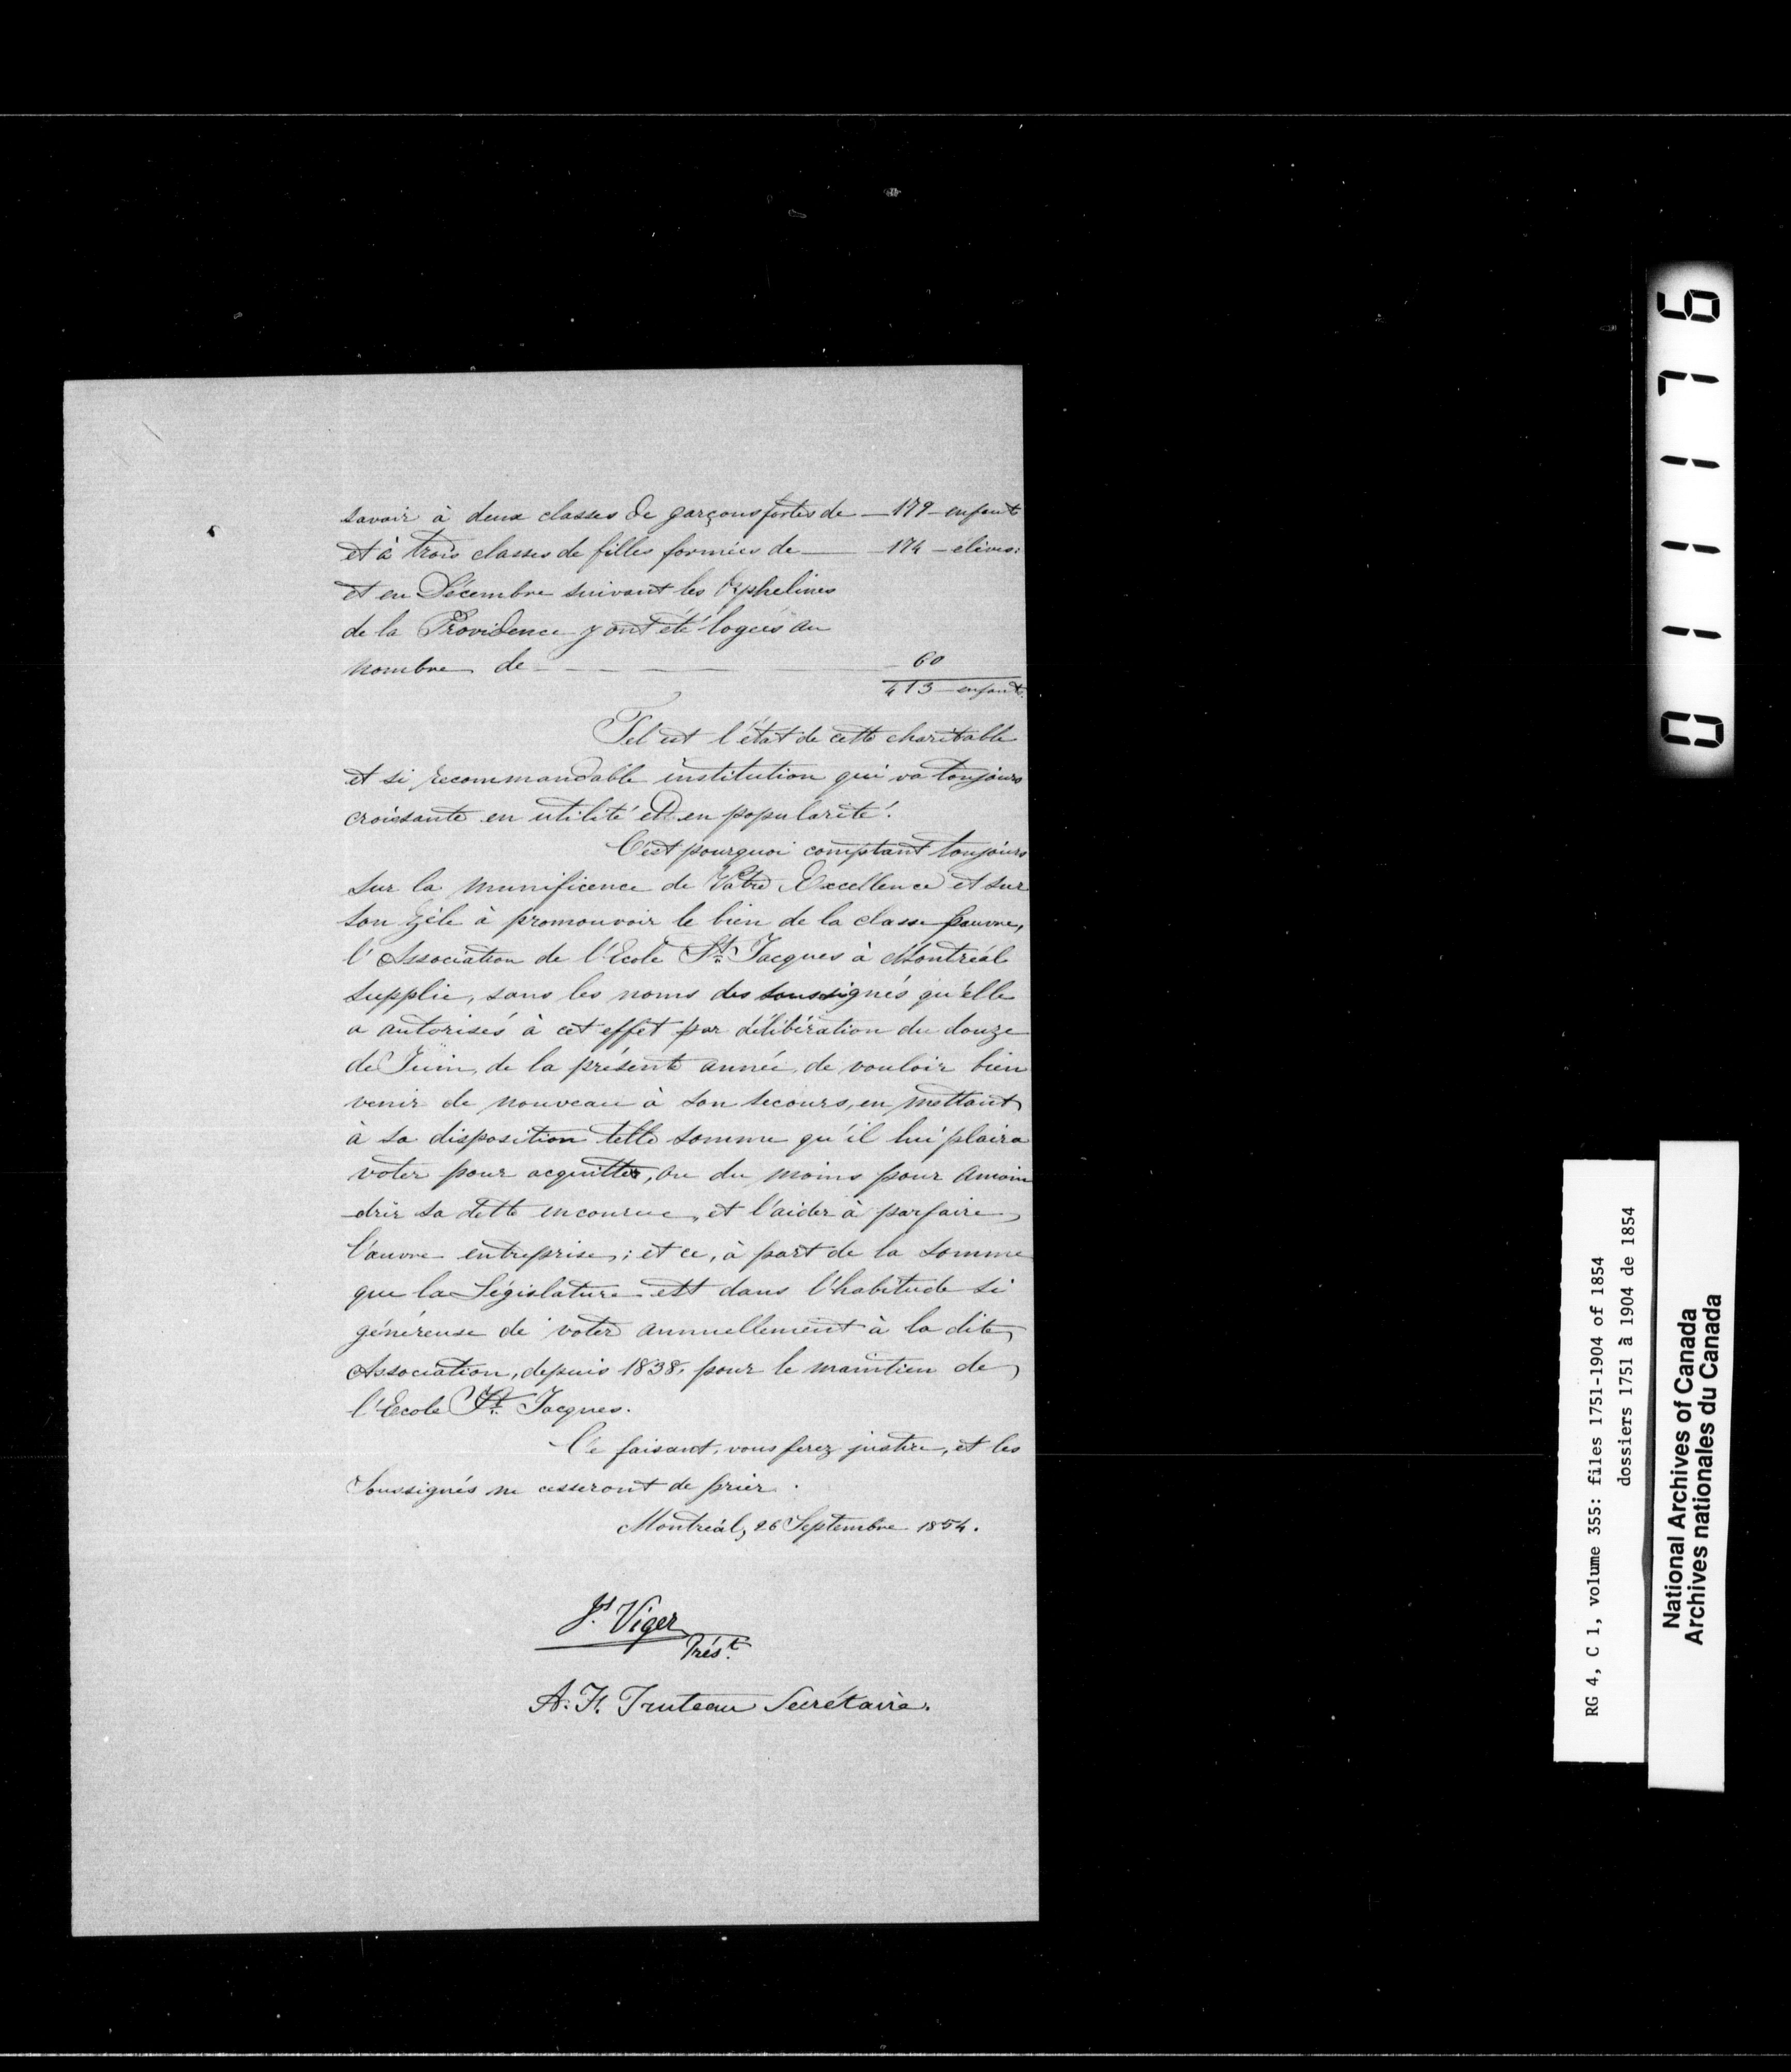 savoir à deux classes de garçons fortes de — 179 — enfants
et à trois classes de filles formées de — 174 — élèves:
et en Décembre suivant les Orphelines
de la Providence y ont été logées au
nombre de — 60
413 — enfants.
Tel est l'état de cette charitable
et si recommandable institution qui va toujours
croissante en utilité et en popularité.
C'est pourquoi comptant toujours
sur la munificence de Votre Excellence et sur
son zèle à promouvoir le bien de la classe pauvre,
l'Association de l'Ecole St. Jacques à Montréal
supplie, sous les noms des soussignés qu'elle
a autorisés à cet effet par délibération du douze
de Juin, de la présente année, de vouloir bien
venir de nouveau à son secours, en mettant
à sa disposition telle somme qu'il lui plaira
voter pour acquitter, ou du moins pour amoin
-drir sa dette encourue, et l'aider à parfaire
l'œuvre entreprise; et ce, à part de la somme
que la Législature est dans l'habitude si
généreuse de voter annuellement à la dite
Association, depuis 1838, pour le maintien de
l'Ecole St. Jacques.
Ce faisant, vous ferez justice, et les
Soussignés ne cesseront de prier.
Montréal, 26 Septembre 1854.
Js. Viger
Prést.
A. F. Truteau Secrétaire.
011176
RG 4, C 1, volume 355: files 1751-1904 of 1854
dossiers 1751 à 1904 de 1854
National Archives of Canada
Archives nationales du Canada